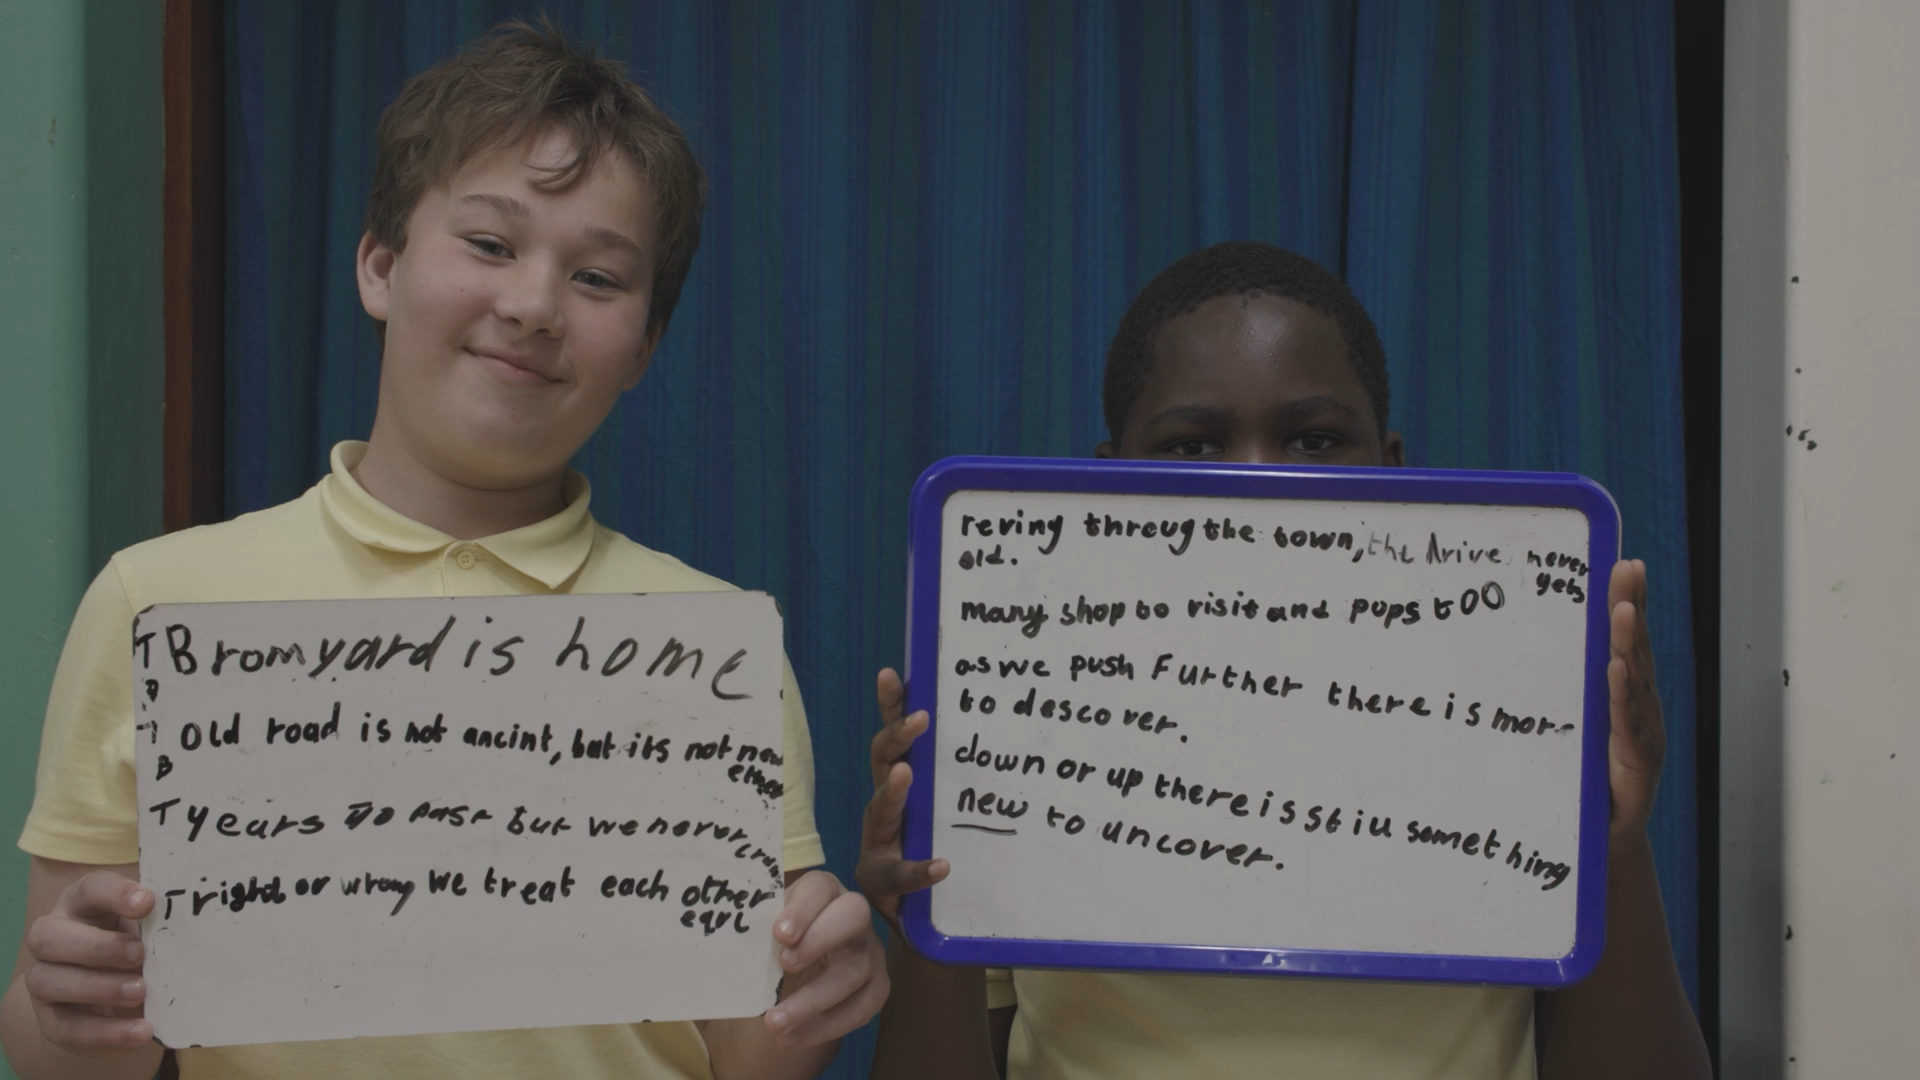 T Bromyard is home
B
T old road is not ancint, but its not new
ether
B
T years go past but we never
T right or wrong we treat each other
equl
reving threug the town, the drive never
gets
old.
many shop to visit and pups too
as we push Further there is more
to descover.
down or up there is still something
new to uncover.